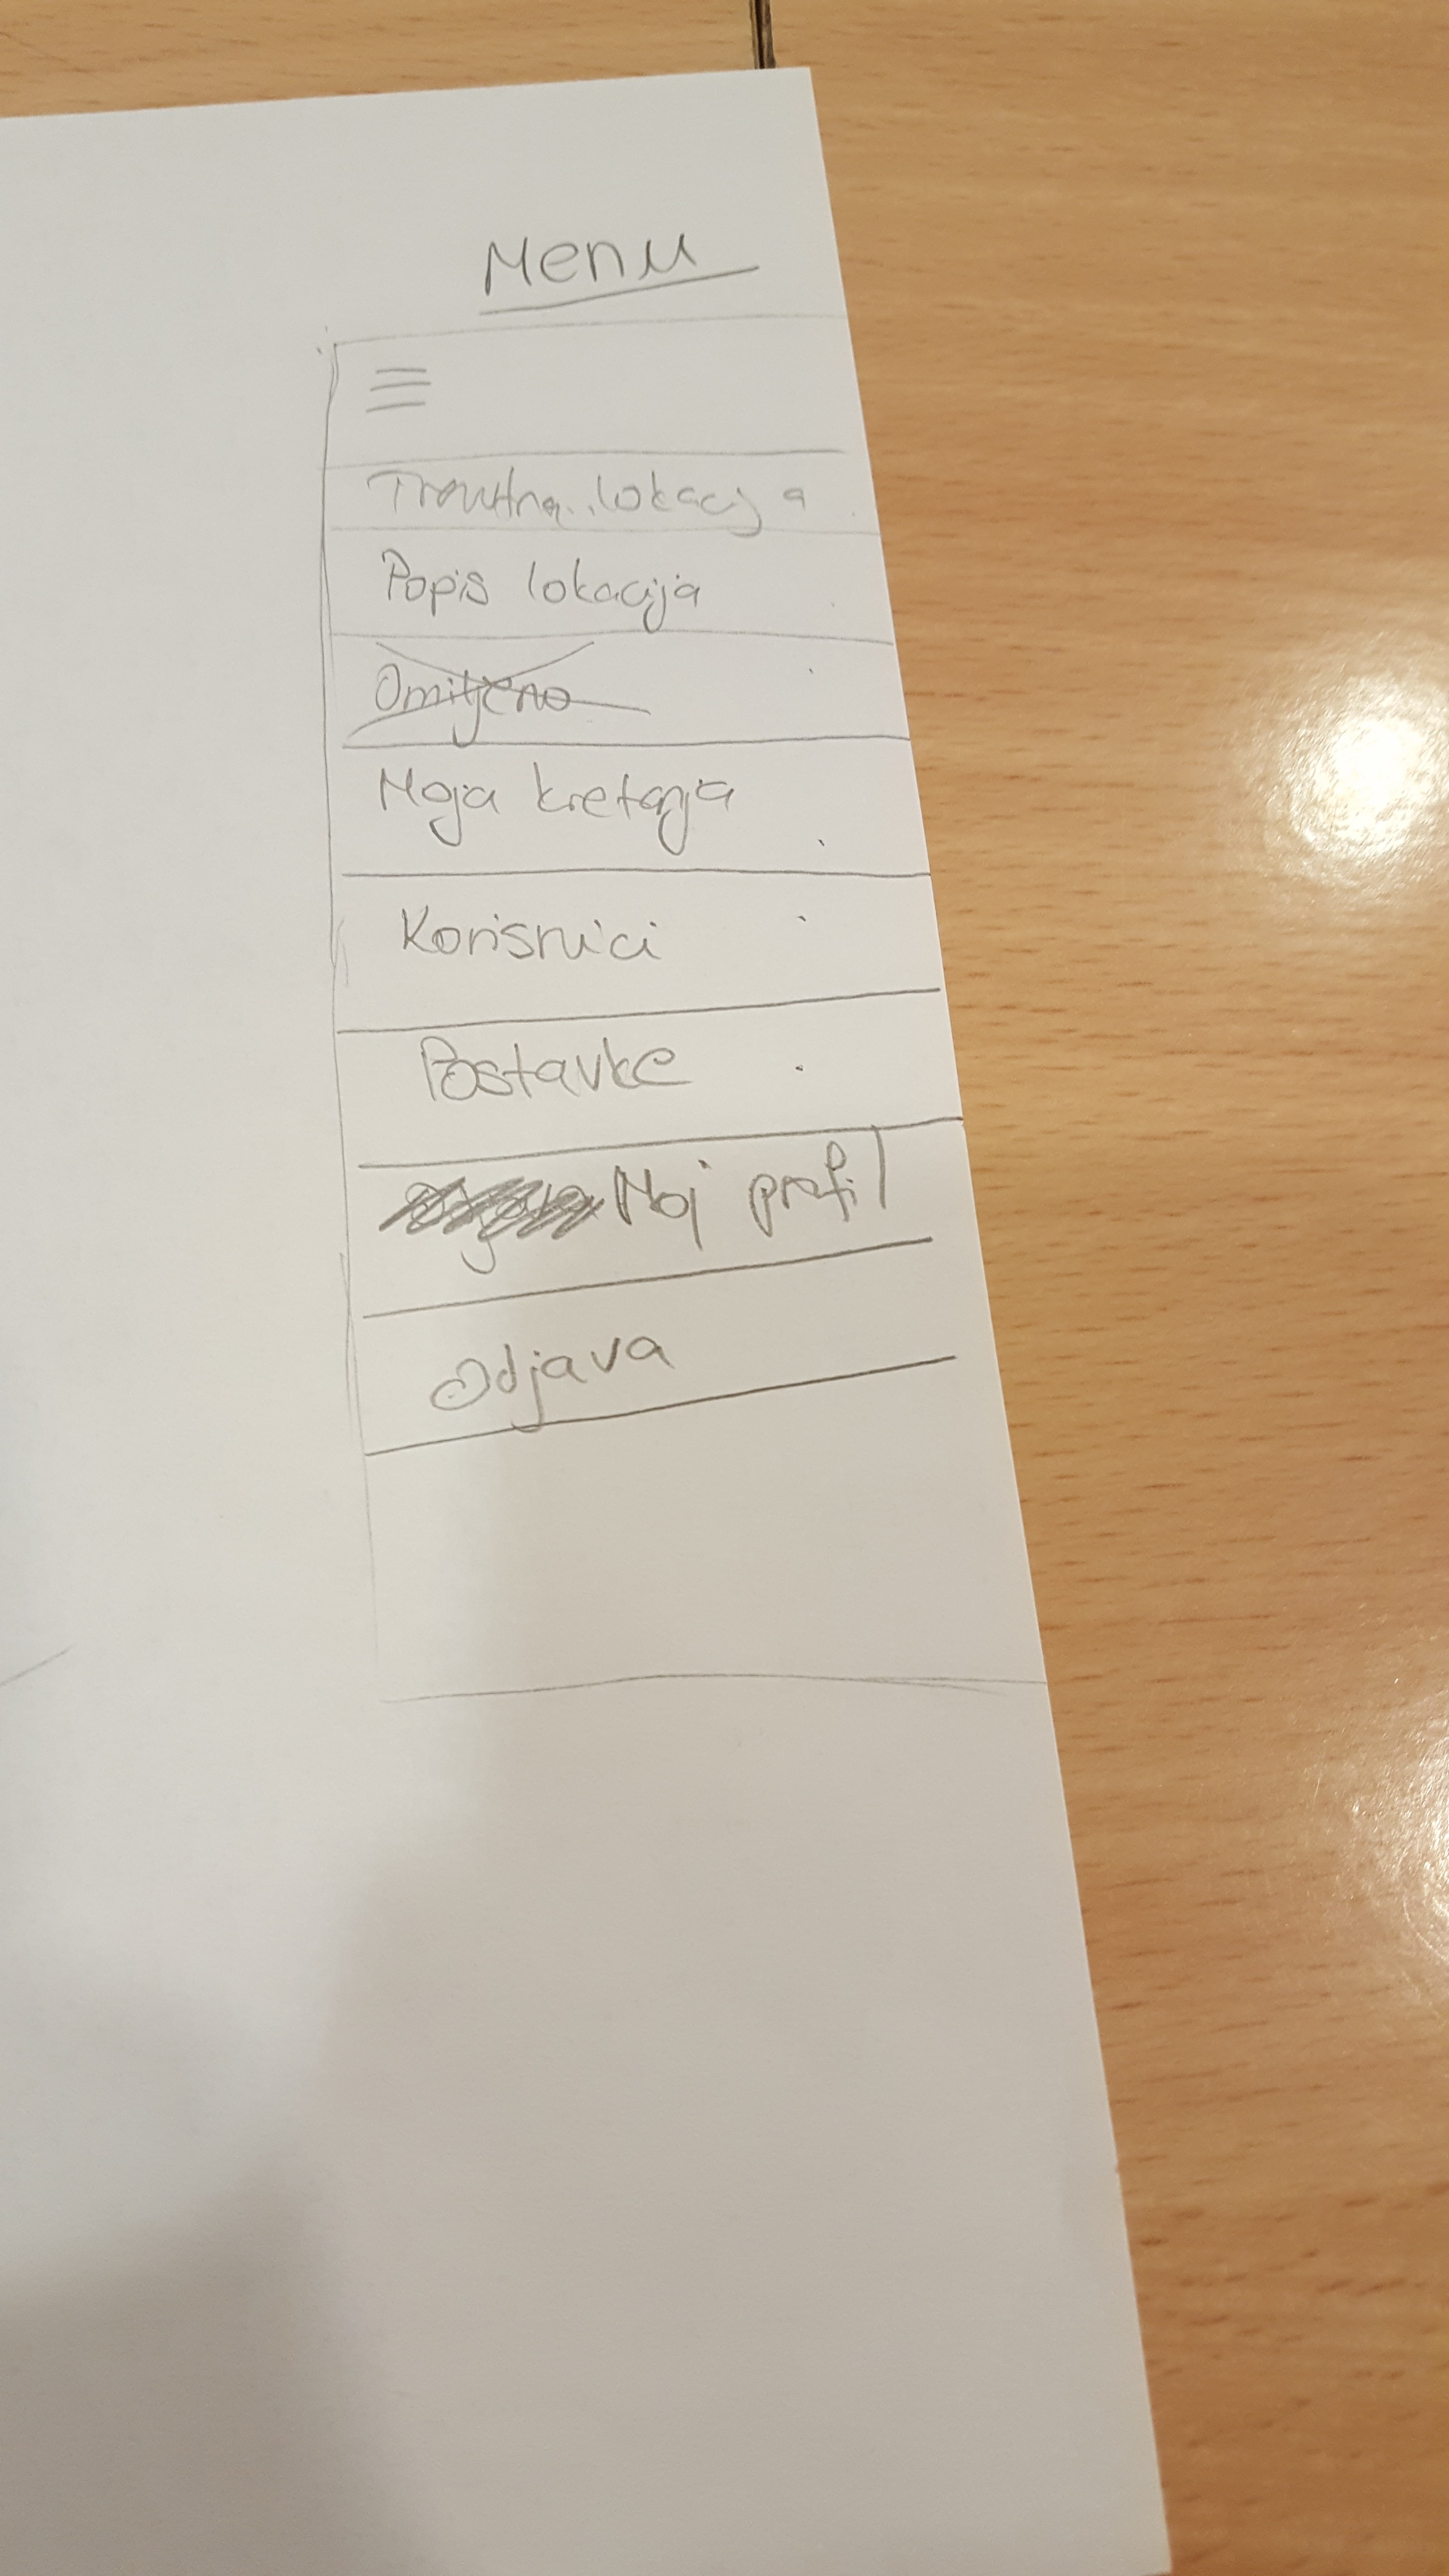 Menu
Trenutna lokacija
Popis lokacija
Omiljeno
Moja kretanja
Korisnici
Postavke
Moj profil
Odjava